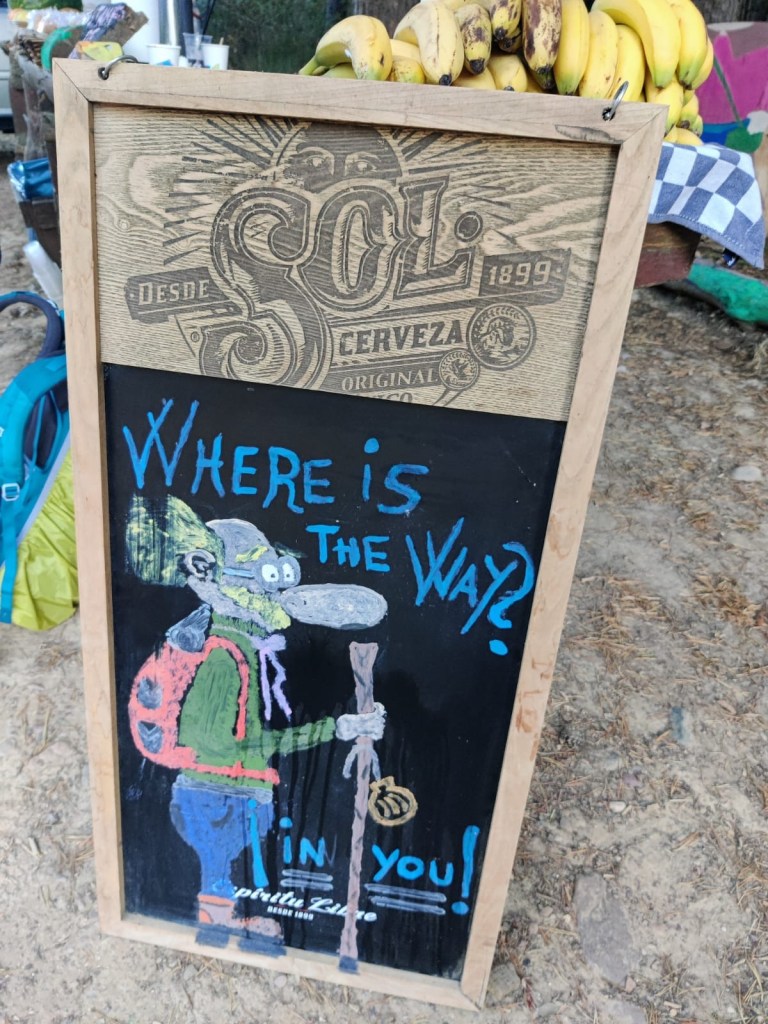 SOL
DESDE 1899
CERVEZA
ORIGINAL
WHERE iS
THE WAY?
¡iN YOU!
Espiritu Libre
DESDE 1899